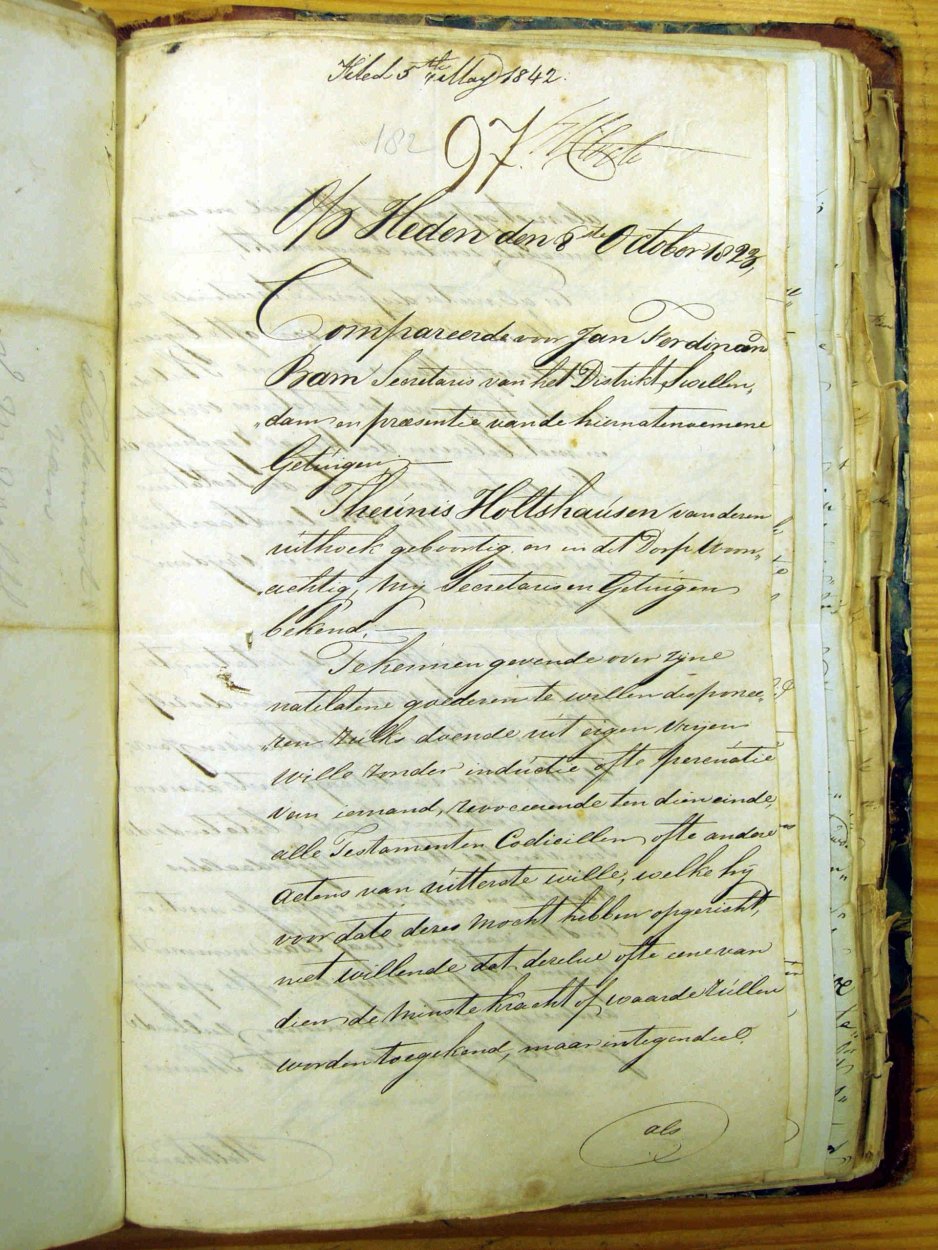 Filed 5th May 1842.
182
97.
Op Heden den 8ste October 1823,
Compareerde voor Jan Ferdinand
Bam Secretaris van het Distrikt Swellen„
„dam en præsentie van de hiernatenoemene
Getuigen;
Theunis Holtshausen van deren
uithoek geboortig, en in dit Dorp Woon„
„achtig, My Secretaris en Getuigen
bekend.
Te kennen gevende over zyne
natelatene goederen te willen disponee„
„ren zulks doende uit eigen vryen
wille zonder inductie ofte persuatie
van iemand, revoceerende ten dien einde,
alle Testamenten Codicillen ofte andere
actens van uitterste wille, welke hy
voor dato deses mocht hebben opgericht,
niet willende dat deselve ofte eene van
dien de minste kracht of waarde zullen
worden toegekend, maar integendeel.
als